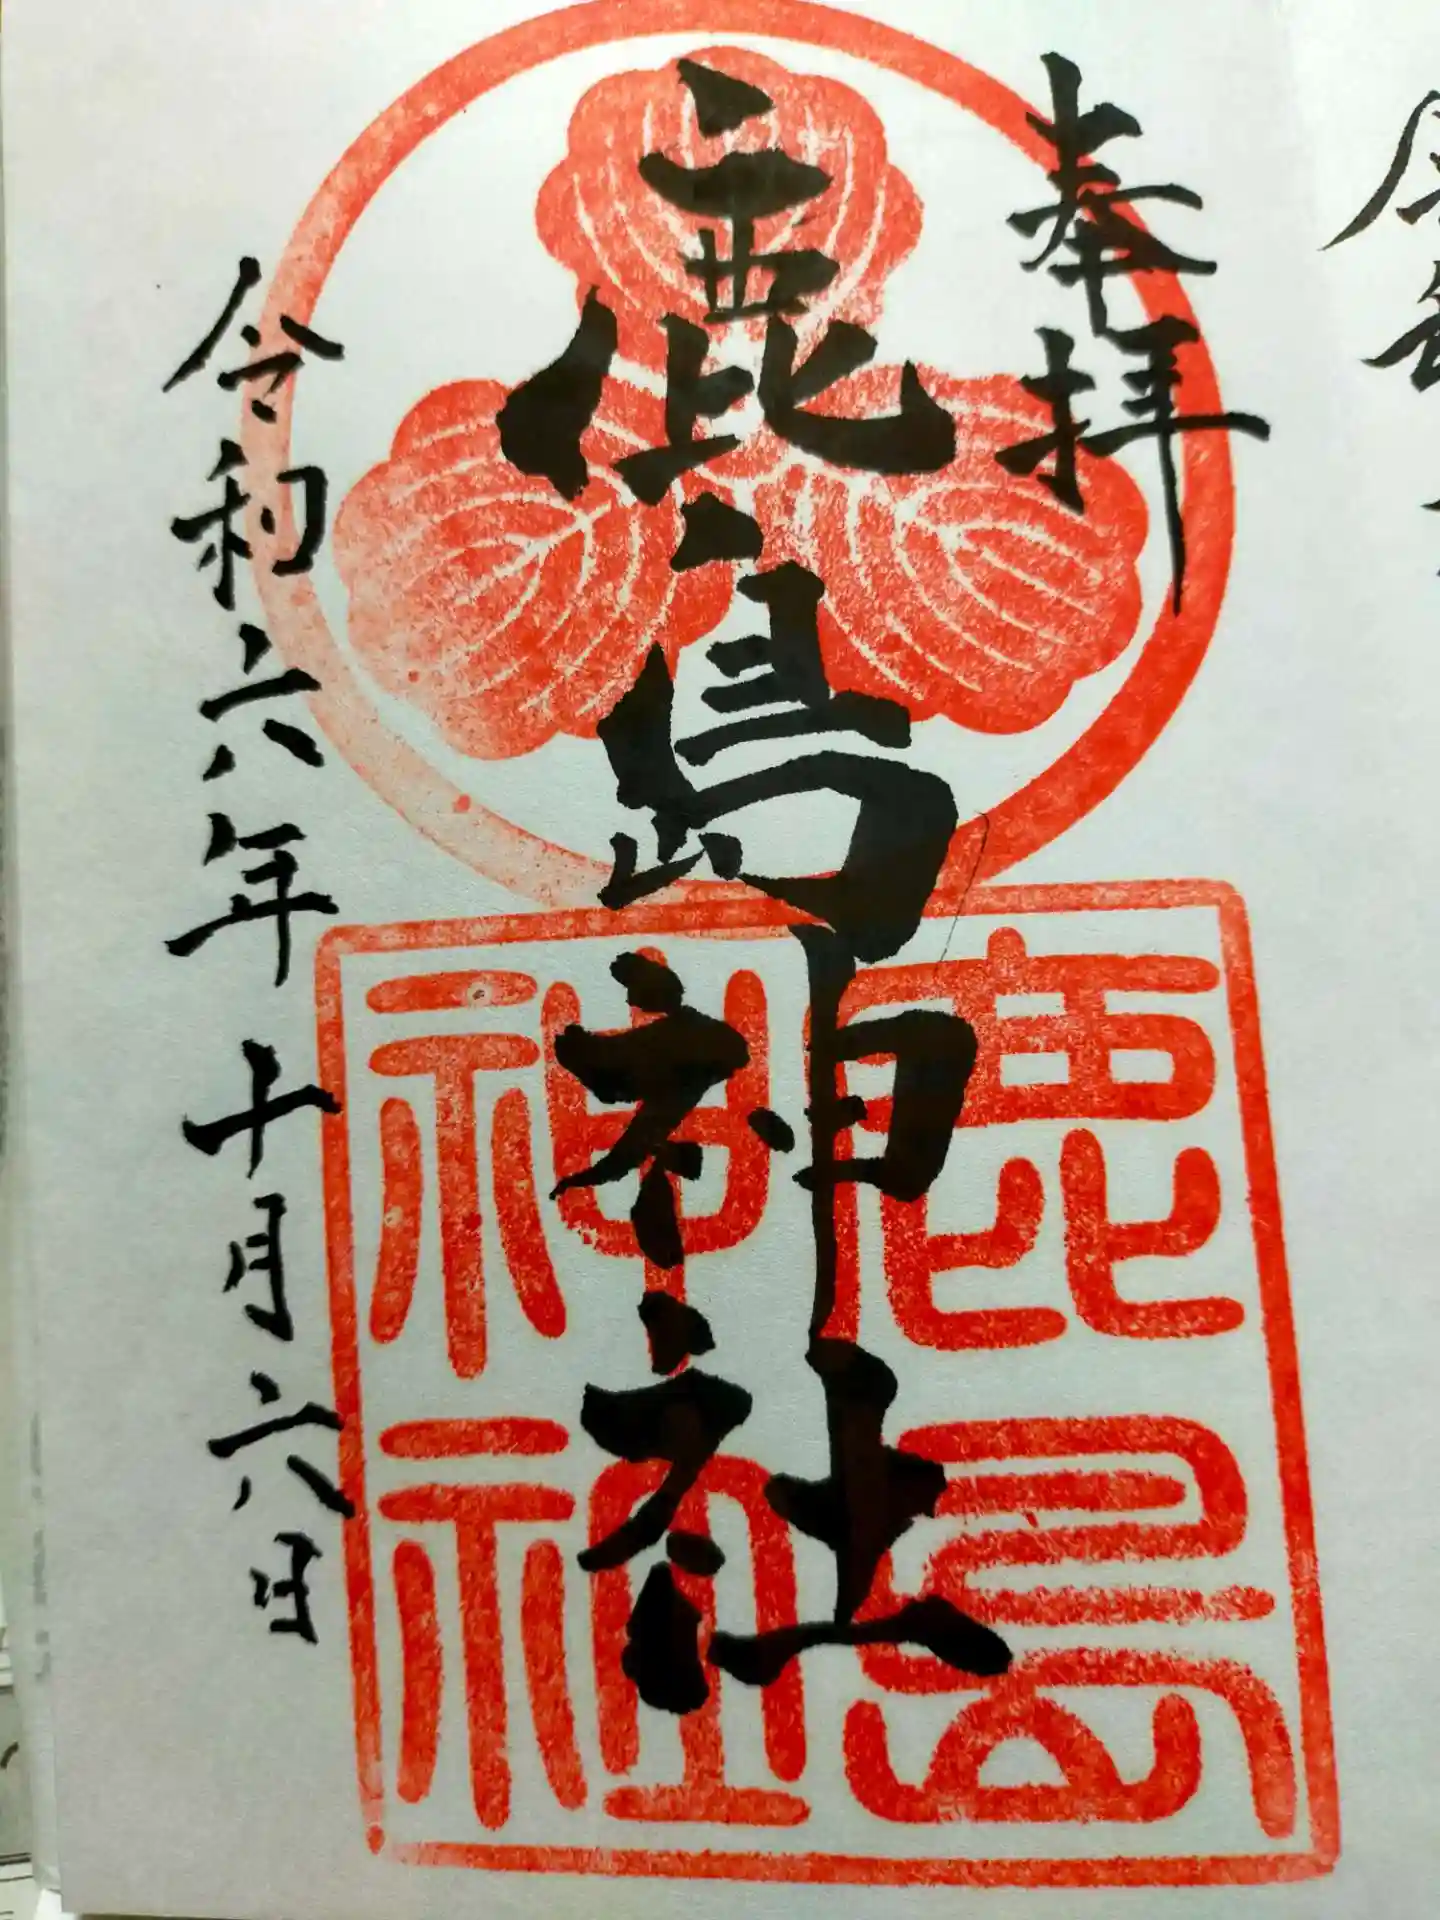 奉拝
鹿島神社
鹿島
神社
令和六年十月六日